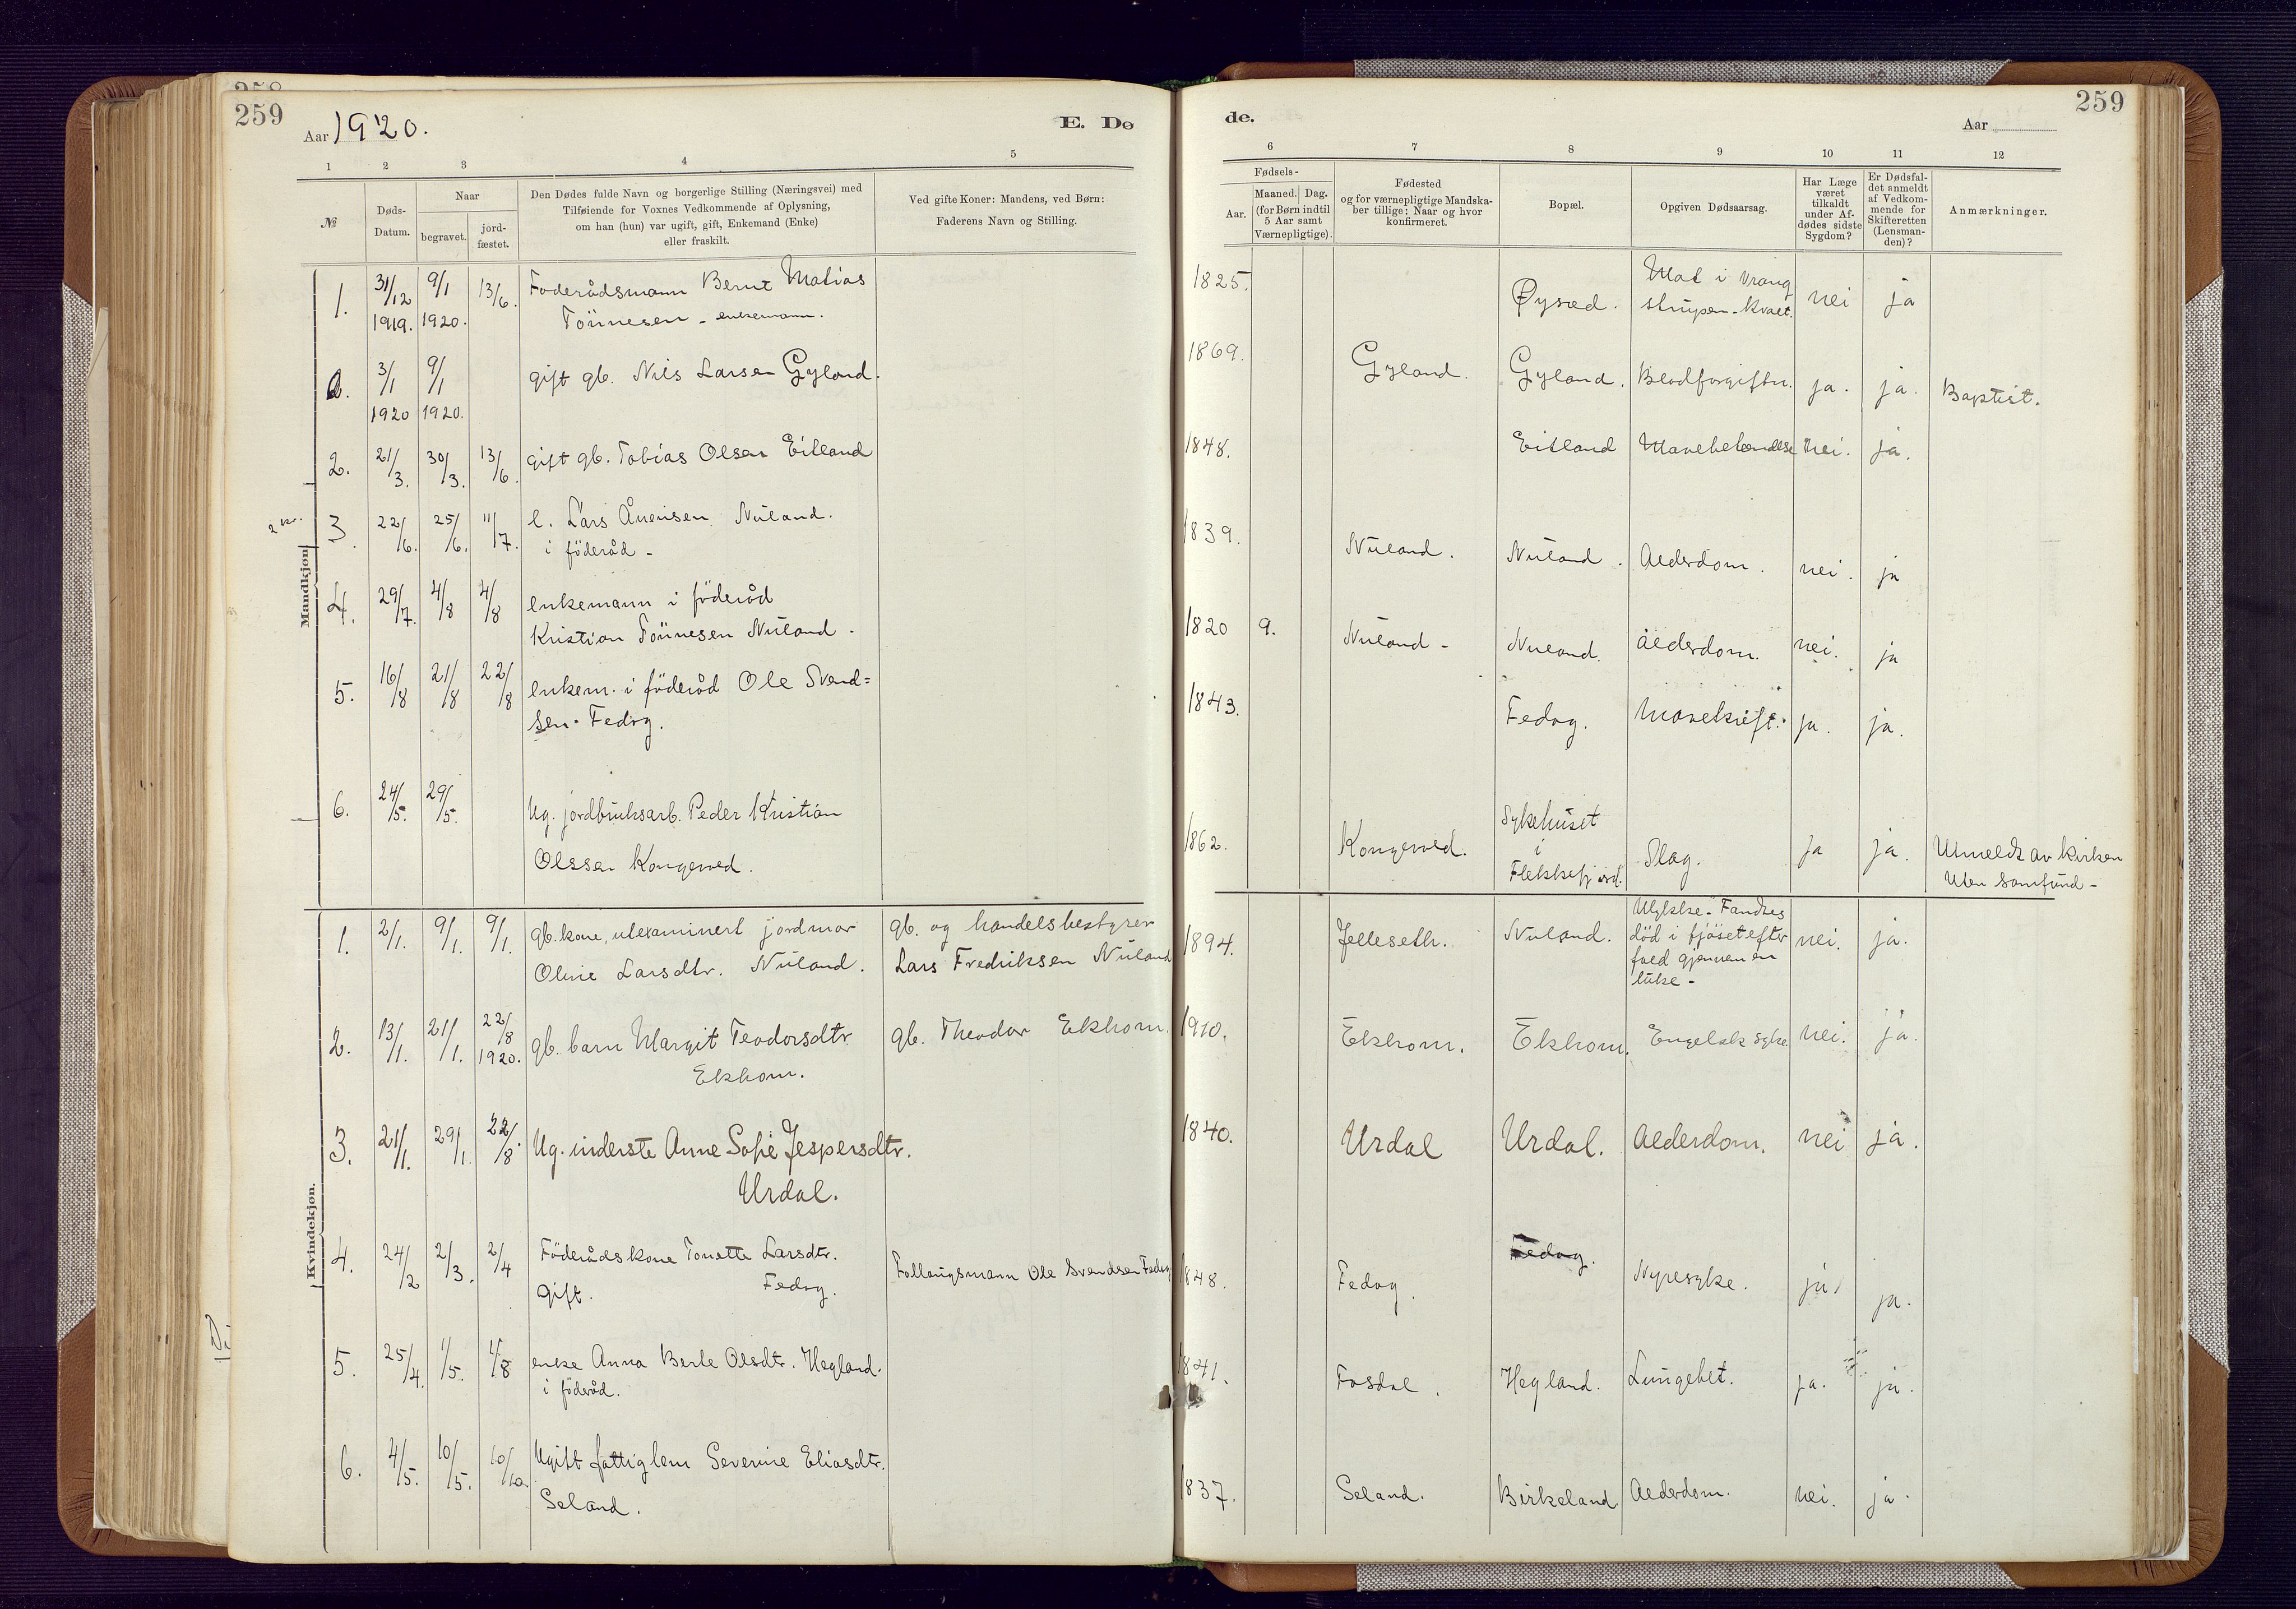 258
259
Aar 1920.
E. Dø
1 2 3 4 5
№
Døds-
Datum.
Naar
begravet.
jord-
fæstet.
Den Dødes fulde Navn og borgerlige Stilling (Næringsvei) med
Tilføiende for Voxnes Vedkommende af Oplysning,
om han (hun) var ugift, gift, Enkemand (Enke)
eller fraskilt.
Ved gifte Koner: Mandens, ved Børn:
Faderens Navn og Stilling.
Mandkjøn
1. 31/12 9/1 13/6. Föderådsmann Bernt Matias
1919. 1920. Tönnesen - enkemann.
3/1 9/1 gift gb. Nils Larsen Gyland.
1920 1920.
2. 21/3. 30/3. 13/6. gift gb. Tobias Olsen Eitland
2 kr.
3. 22/6. 25/6. 11/7. l. Lars Ånensen Nuland.
i föderåd -
4. 29/7. 4/8 4/8 enkemann i föderåd
Kristian Tönnesen Nuland.
5. 16/8 21/8 22/8 enkem. i föderåd Ole Svend=
sen. Fedog.
6. 24/5. 29/5. Ug. jordbruksarb. Peder Kristian
Olssen Kongevod.
Kvindekjøn.
1. 2/1. 9/1. 9/1. gb. kone, utexaminert jordmor gb. og handelsbestyrer
Oline Larsdtr. Nuland. Lars Fredriksen Nuland
2. 13/1. 21/1. 22/8 1920. gb. barn Margit Teodorsdtr gb. Theodor Ekhom.
Ekhom.
3. 21/1. 29/1. 22/8 Ug. inderste Anne Sofie Jespersdtr.
Urdal.
4. 24/2 2/3. 2/4 Föderådskone Tonette Larsdtr. Follaugsmann Ole Svendsen Fedog
gift. Fedog.
5. 25/4. 1/5. 1/8 enke Anna Berte Olsdtr. Hegland.
i föderåd.
6. 4/5. 10/5. 10/10. Ugift fattiglem Severine Eliasdtr.
Seland.
de.
Aar
259
6 7 8 9 10 11 12
Fødsels-
Aar.
Maaned. Dag.
(for Børn indtil
5 Aar samt
Værnepligtige).
Fødested
og for værnepligtige Mandska-
ber tillige: Naar og hvor
konfirmeret.
Bopæl.
Opgiven Dødsaarsag.
Har Læge
været
tilkaldt
under Af-
dødes sidste
Sygdom?
Er Dødsfal-
det anmeldt
af Vedkom-
mende for
Skifteretten
(Lensman-
den)?
Anmærkninger.
1825. Øysæd. Mat i vrang nei ja
strupen - kvalt.
1869. Gyland. Gyland. Blodforgiftn. ja. ja. Baptist.
1848. Eitland Mavebetendelse nei. ja.
1839. Nuland. Nuland. Alderdom. nei. ja
1820 9. Nuland - Nuland. alderdom. nei. ja
1843. Fedog. Mavekræft. ja. ja.
1862. Kongevod. Sykehuset
i
Flekkefjord. Slag. ja ja. Utmeldt av kirken
Uten samfund -
1894. Jelleseth. Nuland. Ulykke. Fandtes
död i fjöset efter nei. ja.
fald gjennem en
luke -
1910. Ekhom. Ekhom. Engelsk syke. nei. ja.
1840. Urdal Urdal. Alderdom. nei ja.
1848. Fedog. Fedog. Nyresyke. ja ja.
1841. Fosdal. Hegland. Lungebet. ja. ja.
1837. Seland. Birkeland Alderdom. nei. ja.